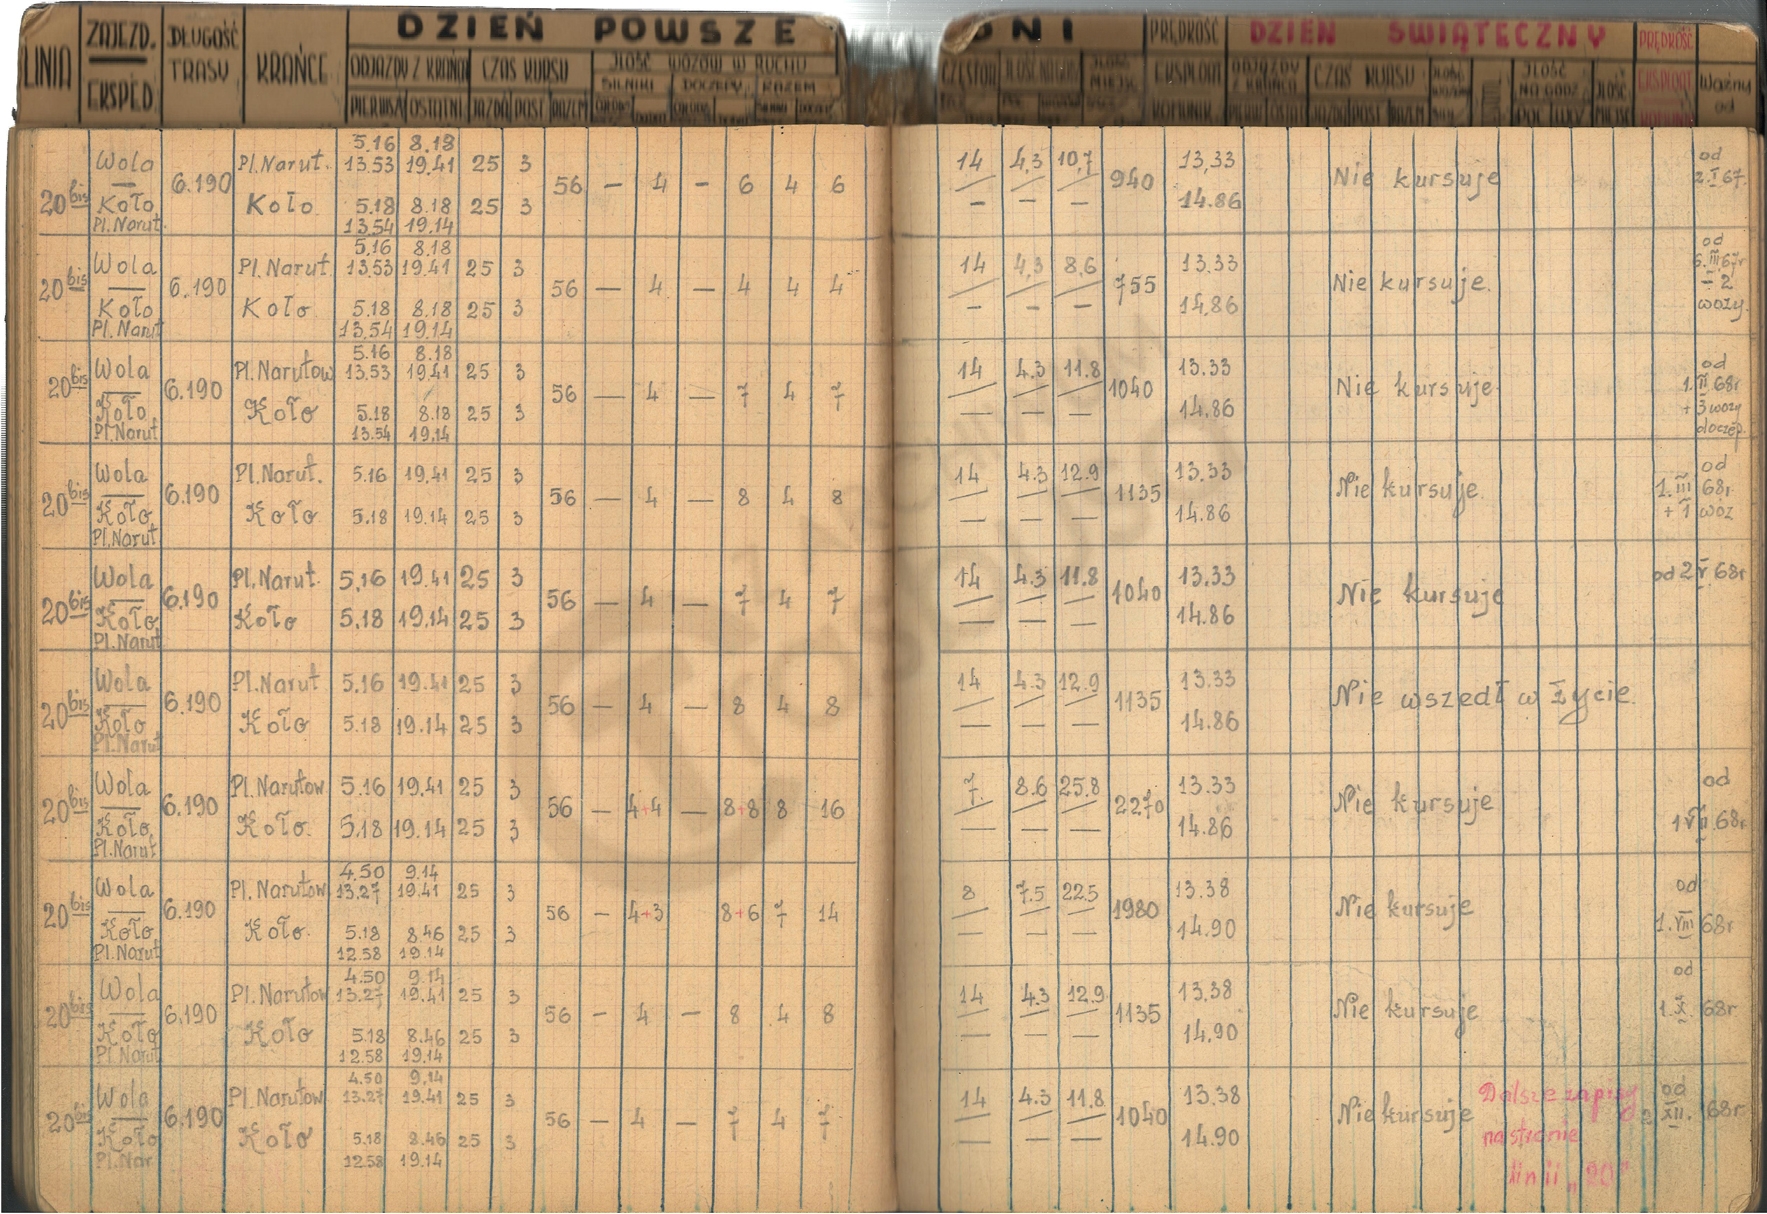 DZIEŃ POWSZEDNI DZIEŃ ŚWIĄTECZNY
LINIA ZAJEZD. EKSPED. DŁUGOŚĆ TRASY KRAŃCE ODJAZDY Z KRAŃCA CZAS KURSU ILOŚĆ WOZÓW W RUCHU
SILNIKI DOCZEPY RAZEM
PIERWSZA OSTATNI JAZDA POST RAZEM
PRĘDKOŚĆ EKSPLOAT KOMUNIK. CZAS KURSU ILOŚĆ NA GODZ. PRĘDKOŚĆ EKSPLOAT Ważny od
5.16 8.18
Wola Pl.Narut. 13.53 19.41 25 3 14 4,3 10,7 13,33 od
20bis 6.190 56 — 4 — 6 4 6 940 Nie kursuje 2.I 67.
Koło Koło. 5.18 8.18 25 3 — — — 14.86
Pl.Narut. 13.54 19.14
5.16 8.18 od
Wola Pl.Narut 13.53 19.41 25 3 14 4,3 8,6 13.33 6.III 67r
20bis 6.190 56 — 4 — 4 4 4 755 Nie kursuje. – 2
Koło Koło. 5.18 8.18 25 3 — — — 14,86 wozy.
Pl.Narut 13.54 19.14
5.16 8.18
Wola Pl.Narutow 13.53 19.41 25 3 14 4.3 11.8 13.33 od
20bis 6.190 56 — 4 — 7 4 7 1040 Nie kursuje 1. 68r
Koło, Koło 5.18 8.18 25 3 — — — 14,86 + 3 wozy
Pl.Narut 13.54 19.14 doczep.
Wola Pl.Narut. 5.16 19.41 25 3 14 4.3 12.9 13.33 od
20bis 6.190 56 — 4 — 8 4 8 1135 Nie kursuje. 1.III 68r
Koło Koło 5.18 19.14 25 3 — — — 14.86 + 1 woz
Pl.Narut
Wola Pl.Narut. 5.16 19.41 25 3 14 4.3 11.8 13.33 od 2 V 68r
20bis 6.190 56 — 4 — 7 4 7 1040 Nie kursuje
Koło Koło 5.18 19.14 25 3 — — — 14.86
Pl.Narut
Wola Pl.Narut 5.16 19.41 25 3 14 4.3 12.9 13.33
20bis 6.190 56 — 4 — 8 4 8 1135 Nie wszedł w życie.
Koło Koło 5.18 19.14 25 3 — — — 14.86
Pl.Narut
Wola Pl.Narutow 5.16 19.41 25 3 7. 8.6 25.8 13.33 od
20bis 6.190 56 — 4+4 — 8+8 8 16 2270 Nie kursuje
Koło, Koło. 5.18 19.14 25 3 — — — 14.86 68r
Pl.Narut
4.50 9.14
Wola Pl.Narutow 13.27 19.41 25 3 8 7.5 22.5 13.38 od
20bis 6.190 56 — 4+3 8+6 7 14 1980 Nie kursuje
Koło Koło. 5.18 8.46 25 3 — — — 14.90 1.VIII 68r
Pl.Narut 12.58 19.14
4.50 9.14 od
Wola Pl.Narutow 13.27 19.41 25 3 14 4.3 12.9 13.38
20bis 6.190 56 — 4 — 8 4 8 1135 Nie kursuje 1.X. 68r
Koło Koło 5.18 8.46 25 3 — — — 14.90
Pl.Narut 12.58 19.14
4.50 9.14
Wola Pl.Narutow 13.27 19.41 25 3 14 4.3 11.8 13.38 Dalsze zapisy od
20bis 6.190 56 — 4 — 7 4 7 1040 Nie kursuje 2 XII. 68r
Koło Koło 5.18 8.46 25 3 — — — 14.90 na stronie
Pl.Nar 12.58 19.14
linii „20"